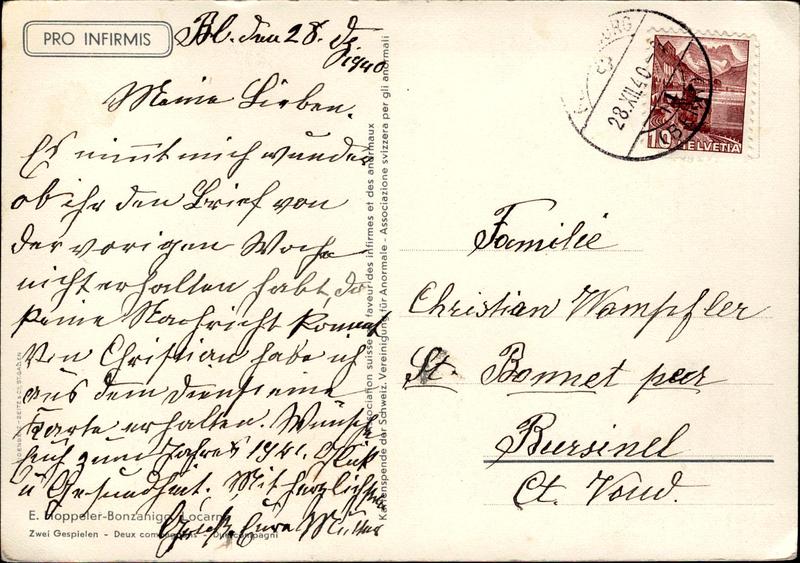 PRO INFIRMIS
Bl. den 28. Dz 1940
Meine Lieben.
Es nimt mich wunder
ob ihr den Brief von
der vorigen Woche
nicht erhalten habt, da
keine Nachricht kommt
Von Christian habe ich
aus dem Dienst eine
Karte erhalten. Wünsche
Euch zum Jahres 1941. Glück
u Gesundheit. Mit herzlichen
Grüß. Eure Mutter
E. Hoppeler-Bonzanigo, Locarno
Zwei Gespielen - Deux compagnons - Due compagni
Kartenspende der Schweiz. Vereinigung für Anormale - Associazione svizzera per gli anormali
association suisse en faveur des infirmes et des anormaux
28.XII.40
10
HELVETIA
Familie
Christian Wampfler
St. Bonnet per
Bursinel
Ct. Vaud.